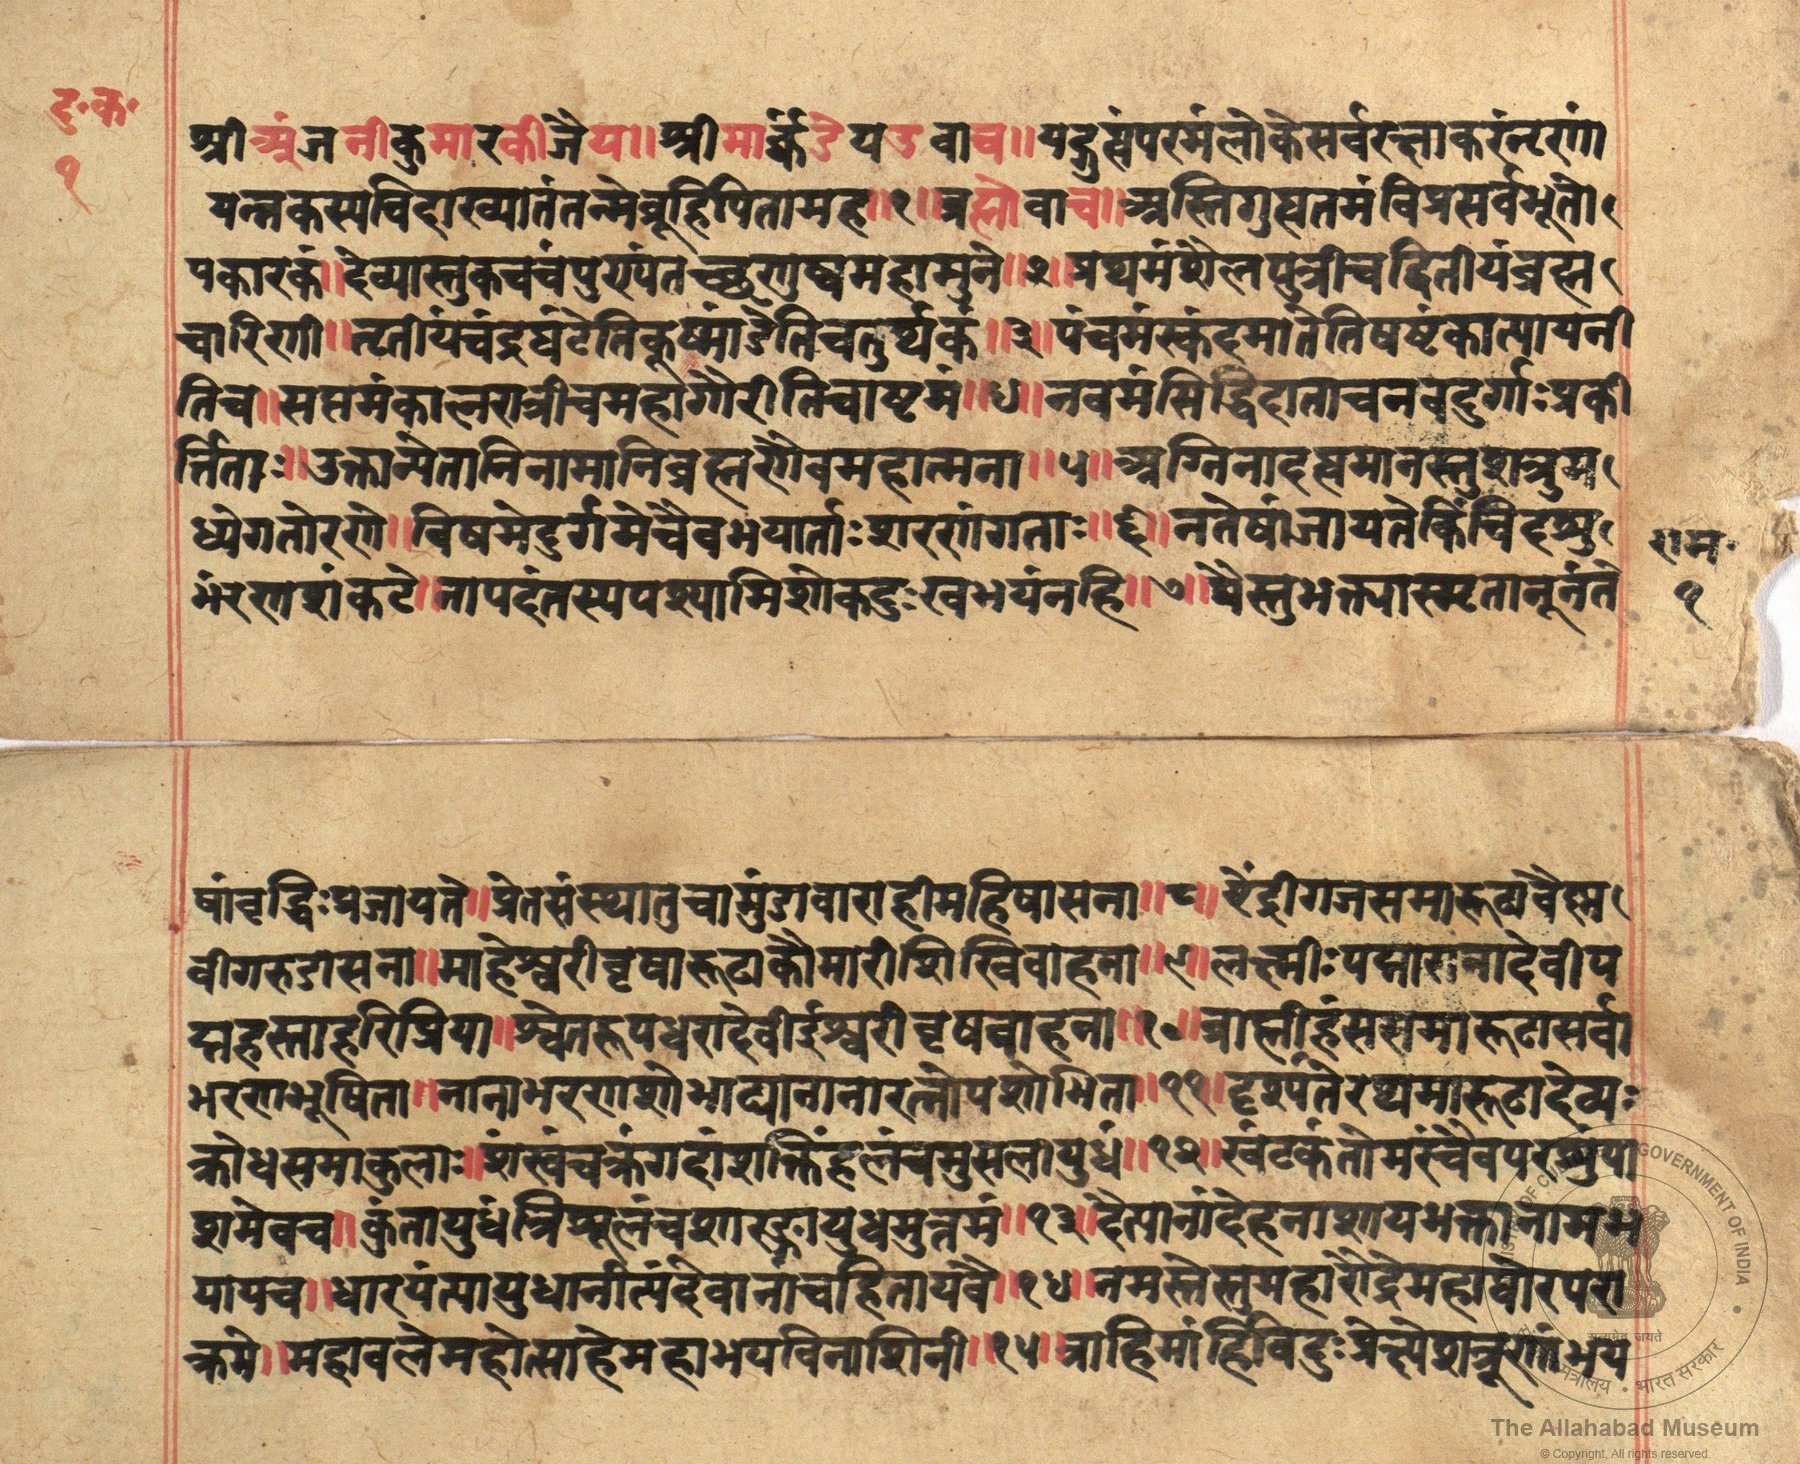 दु॰क॰
१
श्रीअंजनीकुमारकीजैय॥श्रीमार्कंडेयउवाच॥यद्गुह्यंपरमंलोकेसर्वरक्षाकरंनृणां
यन्नकस्यचिदाख्यातंतन्मेब्रूहिपितामह॥१॥ब्रह्मोवाच॥अस्तिगुह्यतमंविप्रसर्वभूतो
पकारकं॥देव्यास्तुकवचंपुण्यंतच्छृणुष्वमहामुने॥२॥प्रथमंशैलपुत्रीचद्वितीयंब्रह्म
चारिणी॥तृतीयंचंद्रघंटेतिकूष्मांडेतिचतुर्थकं॥३॥पंचमंस्कंदमातेतिषष्टंकात्यायनी
तिच॥सप्तमंकालरात्रीचमहागौरीतिचाष्टमं॥४॥नवमंसिद्धिदाताचनवदुर्गाःप्रकी
र्त्तिताः॥उक्तान्येतानिनामानिब्रह्मणैवमहात्मना॥५॥अग्निनादह्यमानस्तुशत्रुम
ध्येगतोरणे॥विषमेदुर्गमेचैवभयार्ताःशरणंगताः॥६॥नतेषांजायतेकिंचिदशु
भंरणशंकटे॥नापदंतस्यपश्यामिशोकदुःखभयंनहि॥७॥यैस्तुभक्त्यास्मृतानूनंते
राम॰
१
षांवृद्धिःप्रजायते॥प्रेतसंस्थातुचामुंडावाराहीमहिषासना॥८॥ऐंद्रीगजसमारूढावैष्म
वीगरुडासना॥माहेश्वरीवृषारूढाकौमारीशिखिवाहना॥९॥लक्ष्मीःपद्मासनादेवीप
द्महस्ताहरिप्रिया॥श्वेतरूपधरादेवीईश्वरीवृषवाहना॥१०॥ब्राह्मीहंससमारूढासर्वा
भरणभूषिता॥नानाभरणशोभाढ्यानानारत्नोपशोभिता॥११॥दृश्यंतेरथमारूढादेव्यः
क्रोधसमाकुलाः॥शंखंचक्रंगदांशक्तिंहलंचमुसलायुधं॥१२॥खेटकंतोमरंचैवपरशुंपा
शमेवच॥कुंतायुधंत्रिशूलंचशार्ङ्गायुधमुत्तमं॥१३॥दैत्यानांदेहनाशायभक्तानामभ
यायच॥धारयंत्यायुधानीत्यंदेवानांचहितायवै॥१४॥नमस्तेस्तुमहारौद्रेमहाघोरपरा
क्रमे॥महावलेमहोत्साहेमहाभयविनाशिनी॥१५॥त्राहिमांदेविदुःप्रेत्क्ष्येशत्रूणांभय
GOVERNMENT OF INDIA
सत्यमेव जयते
भारत सरकार
The Allahabad Museum
© Copyright, All rights reserved.